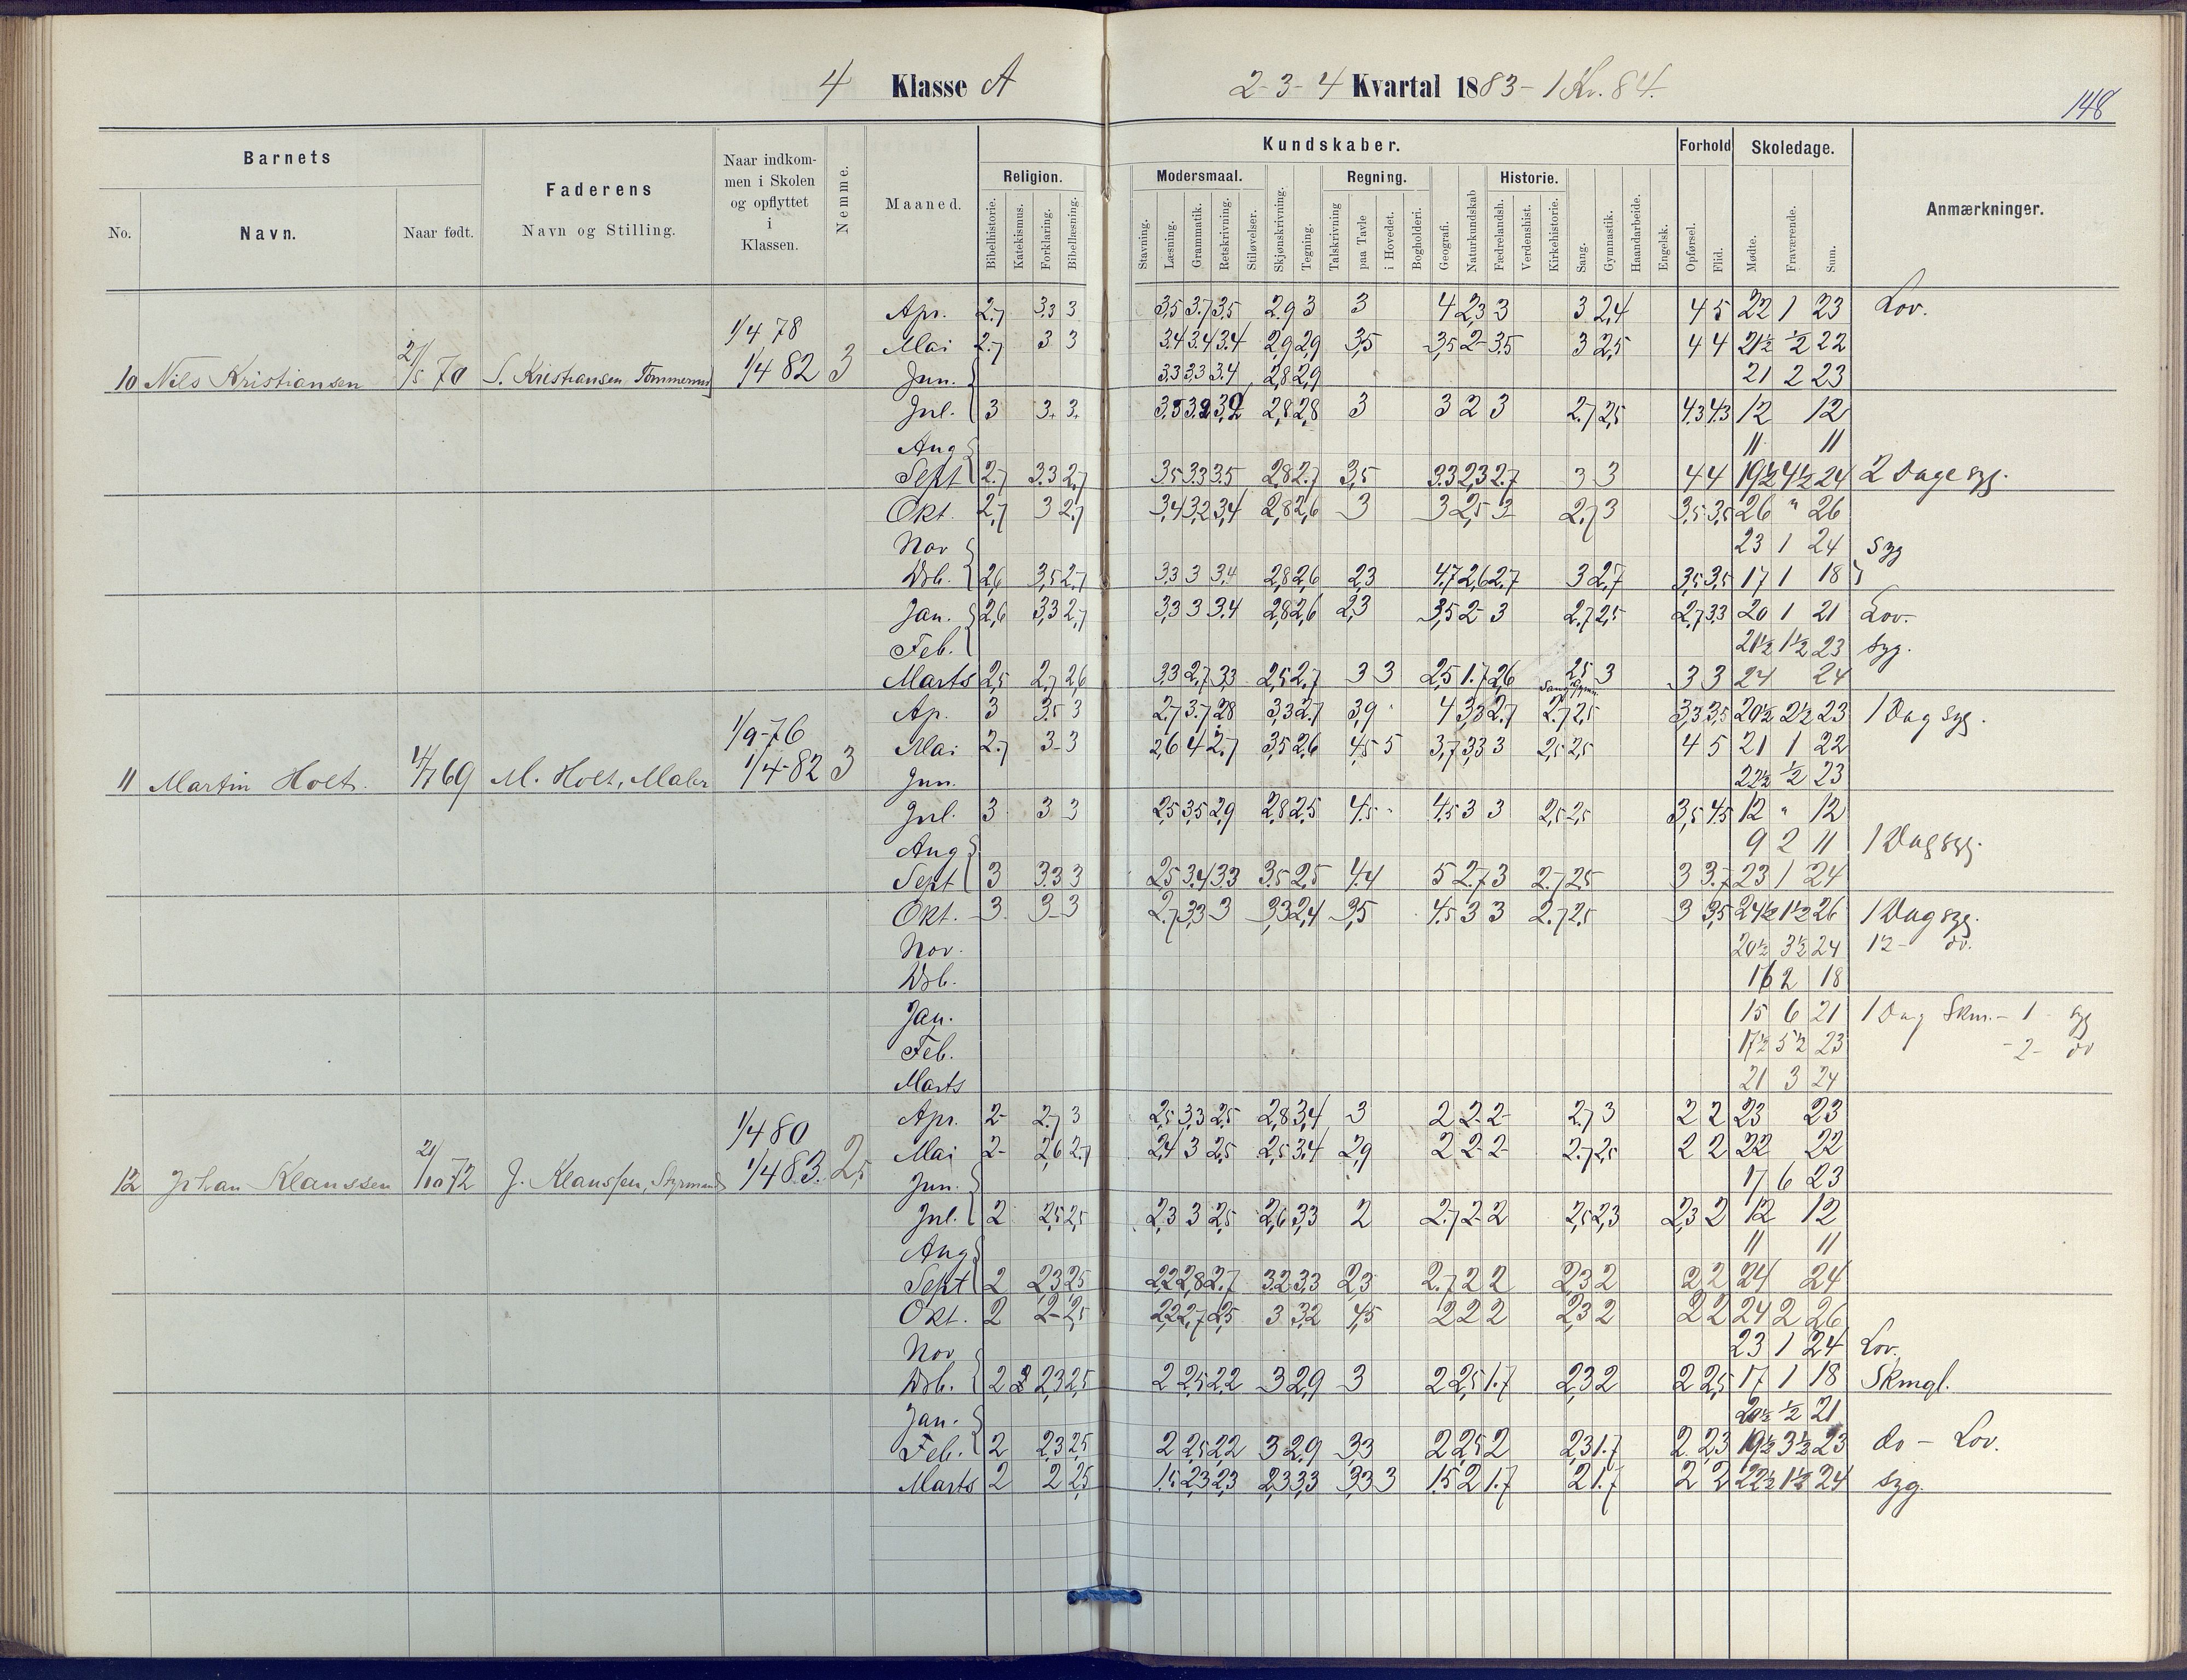 4 Klasse A
2-3-4 Kvartal 1883-1 Kv. 84.
148
Barnets
Faderens
Naar indkommen i Skolen og opflyttet i Klassen.
Nemme.
Maaned.
Kundskaber.
Forhold
Skoledage.
Anmærkninger.
No.
Navn.
Naar født.
Navn og Stilling.
Religion.
Modersmaal.
Regning.
Historie.
Bibelhistorie. Katekismus. Forklaring. Bibellæsning.
Stavning. Læsning. Grammatik. Retskrivning. Stiløvelser. Skjønskrivning. Tegning. Talskrivning paa Tavle i Hovedet. Bogholderi. Geografi. Naturkundskab Fædrelandsh. Verdenshist. Kirkehistorie. Sang. Gymnastik. Haandarbeide. Engelsk. Opførsel. Flid. Mødte. Fraværende. Sum.
Apr. 2.7 3.3 3 3,5 3.7 3,5 2.9 3 3 4 2,3 3 3 2,4 4 5 22 1 23 Lov.
1/4 78
Mai 2.7 3 3 3.4 3.4 3.4 2,9 2,9 3,5 3,5 2- 3.5 3 2,5 4 4 21½ ½ 22
10 Nils Kristiansen 2/5 70 S. Kristiansen 1/4 82 3 Jun. 3.3 3.3 3.4 2,8 2,9 21 2 23
Jul. 3 3. 3. 3.3 3.2 3,2 2,8 2,8 3 3 2 3 2.7 2,5 4.3 4.3 12 12
Aug 11 11
Sept 2.7 3.3 2.7 3.5 3.3 3.5 2.8 2.7 3,5 3.3 2,3 2.7 3 3 4 4 19½ 4½ 24 2 Dage syg.
Okt. 2,7 3 2.7 3,4 3,2 3,4 2,8 2,6 3 3 2,5 3 2,7 3 3,5 3,5 26 " 26
Nov 23 1 24 Syg
Dsb. 2,6 3,5 2,7 3.3 3 3.4 2,8 2,6 2,3 4,7 2,6 2,7 3 2,7 3,5 3,5 17 1 18
Jan. 2,6 3,3 2,7 3.3 3 3.4 2,8 2,6 2,3 3,5 2- 3 2.7 2,5 2.7 3.3 20 1 21 Lov.
Feb. 21½ 1½ 23 syg.
Marts 2,5 2,7 2,6 3,3 2,7 3,3 2,5 2,7 3 3 2,5 1.7 2,6 2,5 3 3 3 24 24
Sang Gymn.
Ap. 3 3.5 3 2,7 3.7 2,8 3,3 2.7 3,9 4 3,3 2.7 2.7 2,5 3,3 3,5 20½ 2½ 23 1 Dag syg.
1/9-76
Mai 2.7 3- 3 2,6 4 2.7 3,5 2,6 4,5 5 3,7 3,3 3 2,5 2,5 4 5 21 1 22
11 Martin Holt. 69 M. Holt, Maler 1/4-82 3 Jun. 22½ ½ 23
Jul. 3 3 3 2,5 3,5 2,9 2,8 2,5 4.5 4.5 3 3 2,5 2,5 3,5 4.5 12 " 12
Aug 9 2 11 1 Dag syg.
Sept 3 3.3 3 2,5 3.4 3.3 3.5 2,5 4.4 5 2.7 3 2.7 2,5 3 3.7 23 1 24
Okt. 3 3- 3 2.7 3,3 3 3,3 2,4 3,5 4.5 3 3 2.7 2,5 3 3,5 24½ 1½ 26 1 Dag syg.
Nov. 20½ 3½ 24 12- do.
Dsb. 16 2 18
Jan. 15 6 21 1 Dag Skm. - 1 - syg
Feb. 17½ 5½ 23 -2- do
Marts 21 3 24
Apr. 2- 2,7 3 2,5 3,3 2,5 2,8 3,4 3 2 2 2- 2,7 3 2 2 23 23
1/4 80
Mai 2- 2,6 2,7 2,4 3 2,5 2,5 3.4 2,9 2 2 2- 2.7 2,5 2 2 22 22
12 Johan Klaussen 21/10 72 J. Klaussen, Styrmand 1/4 83. 2,5 Jun. 17 6 23
Jul. 2 2,5 2,5 2,3 3 2,5 2,6 3,3 2 2.7 2 2 2,5 2,3 2,3 2 12 12
Aug 11 11
Sept 2 2,3 2,5 2,2 2,8 2.7 3.2 3.3 2,3 2.7 2 2 2,3 2 2 2 24 24
Okt. 2 2- 2,5 2,2 2,7 2,5 3 3,2 4,5 2 2 2 2,3 2 2 2 24 2 26
Nov 23 1 24 Lov.
Dsb. 2 2 2,3 2,5 2 2,5 2,2 3 2,9 3 2 2,5 1.7 2,3 2 2 2,5 17 1 18 Skmgl.
Jan. 20½ ½ 21
Feb. 2 2,3 2,5 2 2,5 2,2 3 2,9 3,3 2 2,5 2 2,3 1.7 2 2,3 19½ 3½ 23 do - Lov.
Marts 2 2 2,5 1,5 2,3 2,3 2,3 3,3 3,3 3 1.5 2 1.7 2 1.7 2 2 22½ 1½ 24 syg.